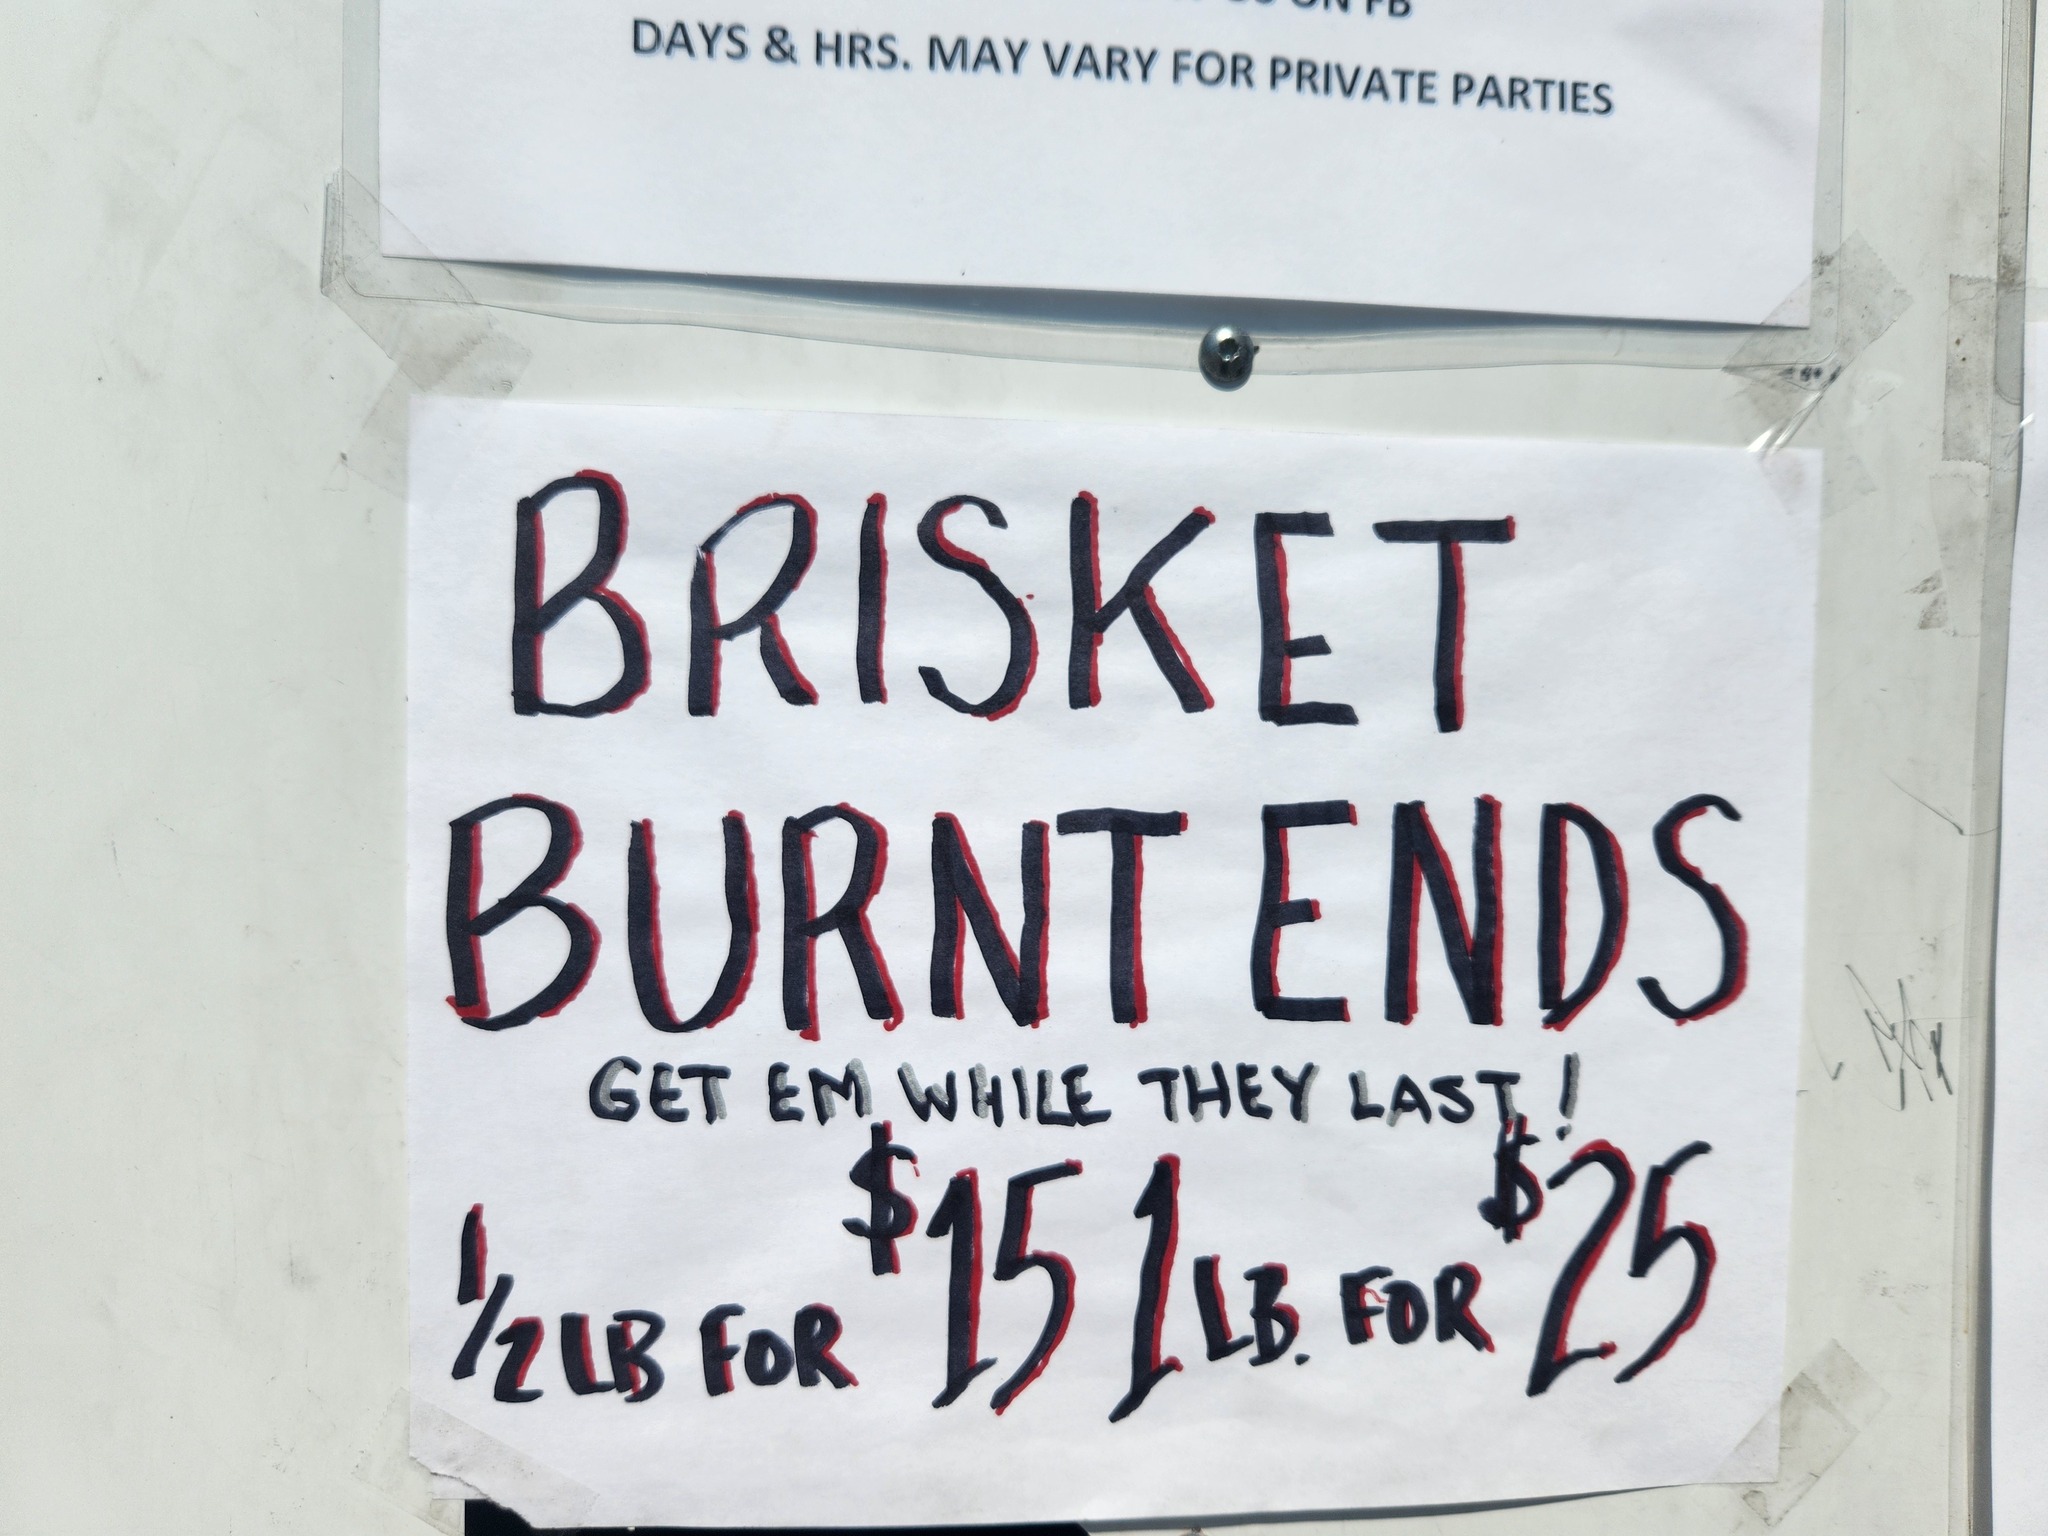 ON FB
DAYS & HRS. MAY VARY FOR PRIVATE PARTIES
BRISKET
BURNT ENDS
GET EM WHILE THEY LAST!
1/2 LB FOR $15 1 LB. FOR $25